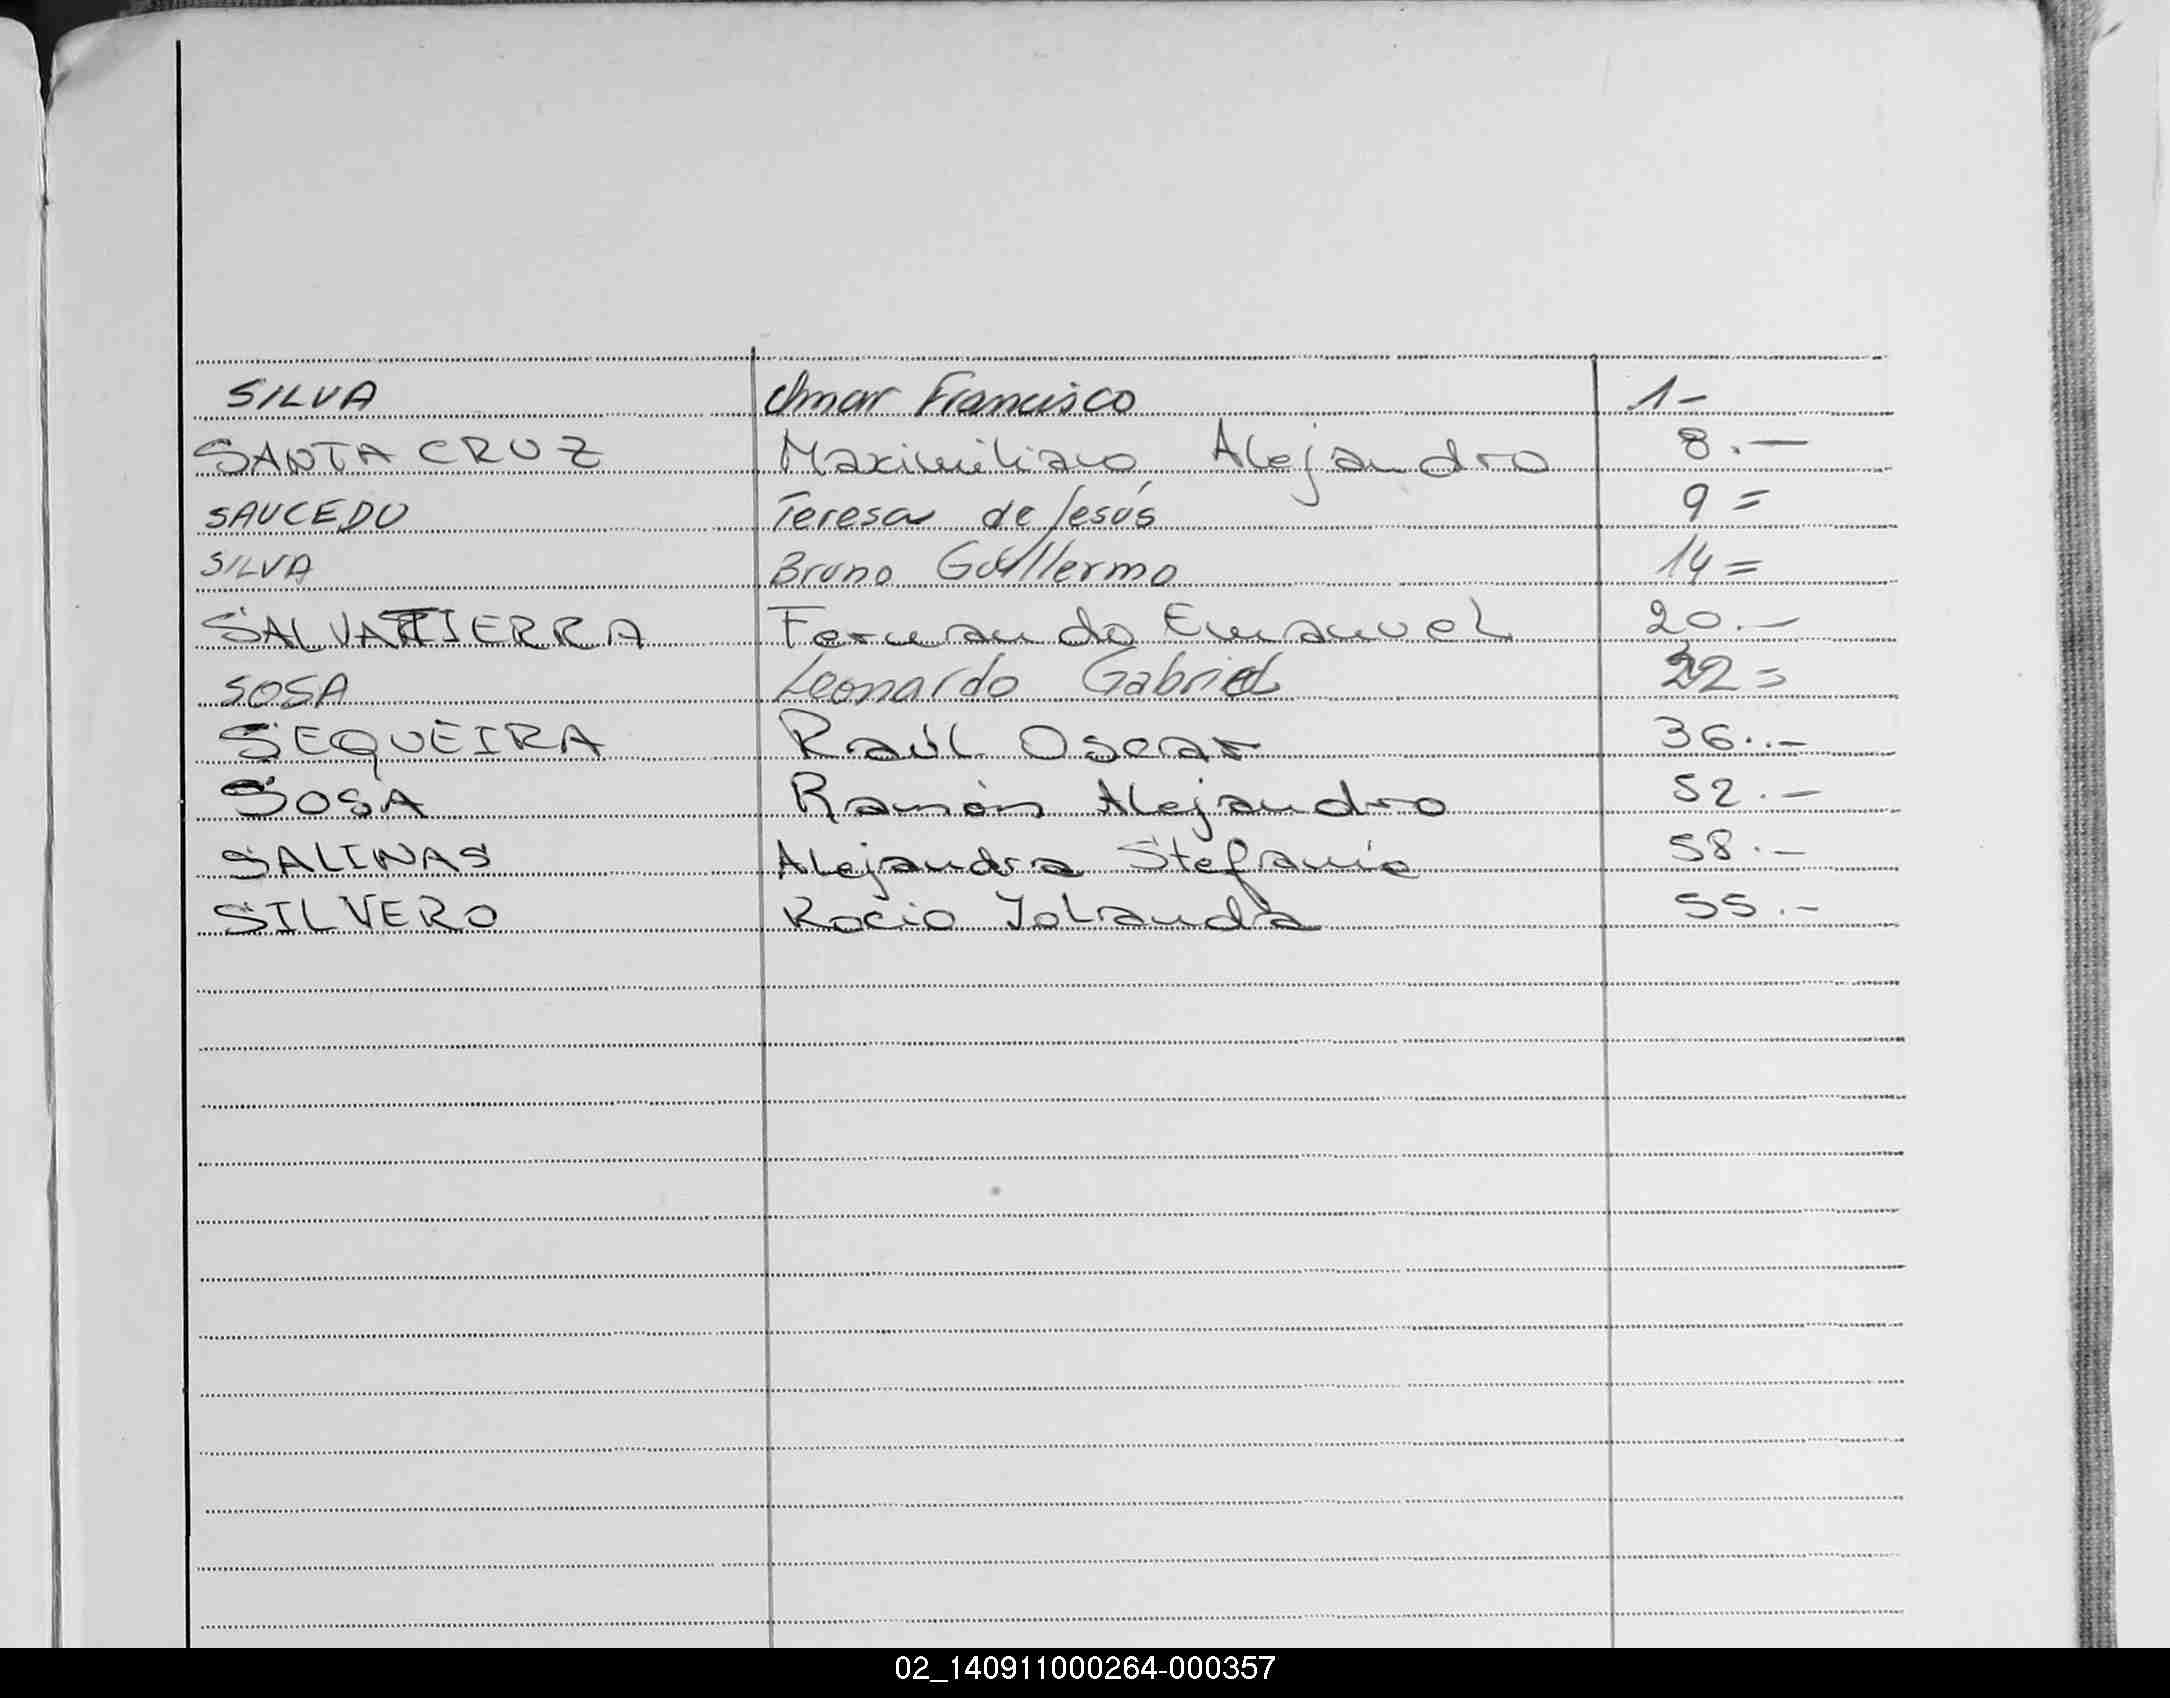 SILVA Omar Francisco 1-
SANTA CRUZ Maximiliano Alejandro 8.-
SAUCEDO Teresa de Jesús 9=
SILVA Bruno Guillermo 14=
SALVATIERRA Fernando Emanuel 20.-
SOSA Leonardo Gabriel
SEQUEIRA Raúl Oscar 36..-
SOSA Ramón Alejandro 52.-
SALINAS Alejandra Stefanie 58.-
SILVERO Rocio Yolanda 55.-
02_140911000264-000357